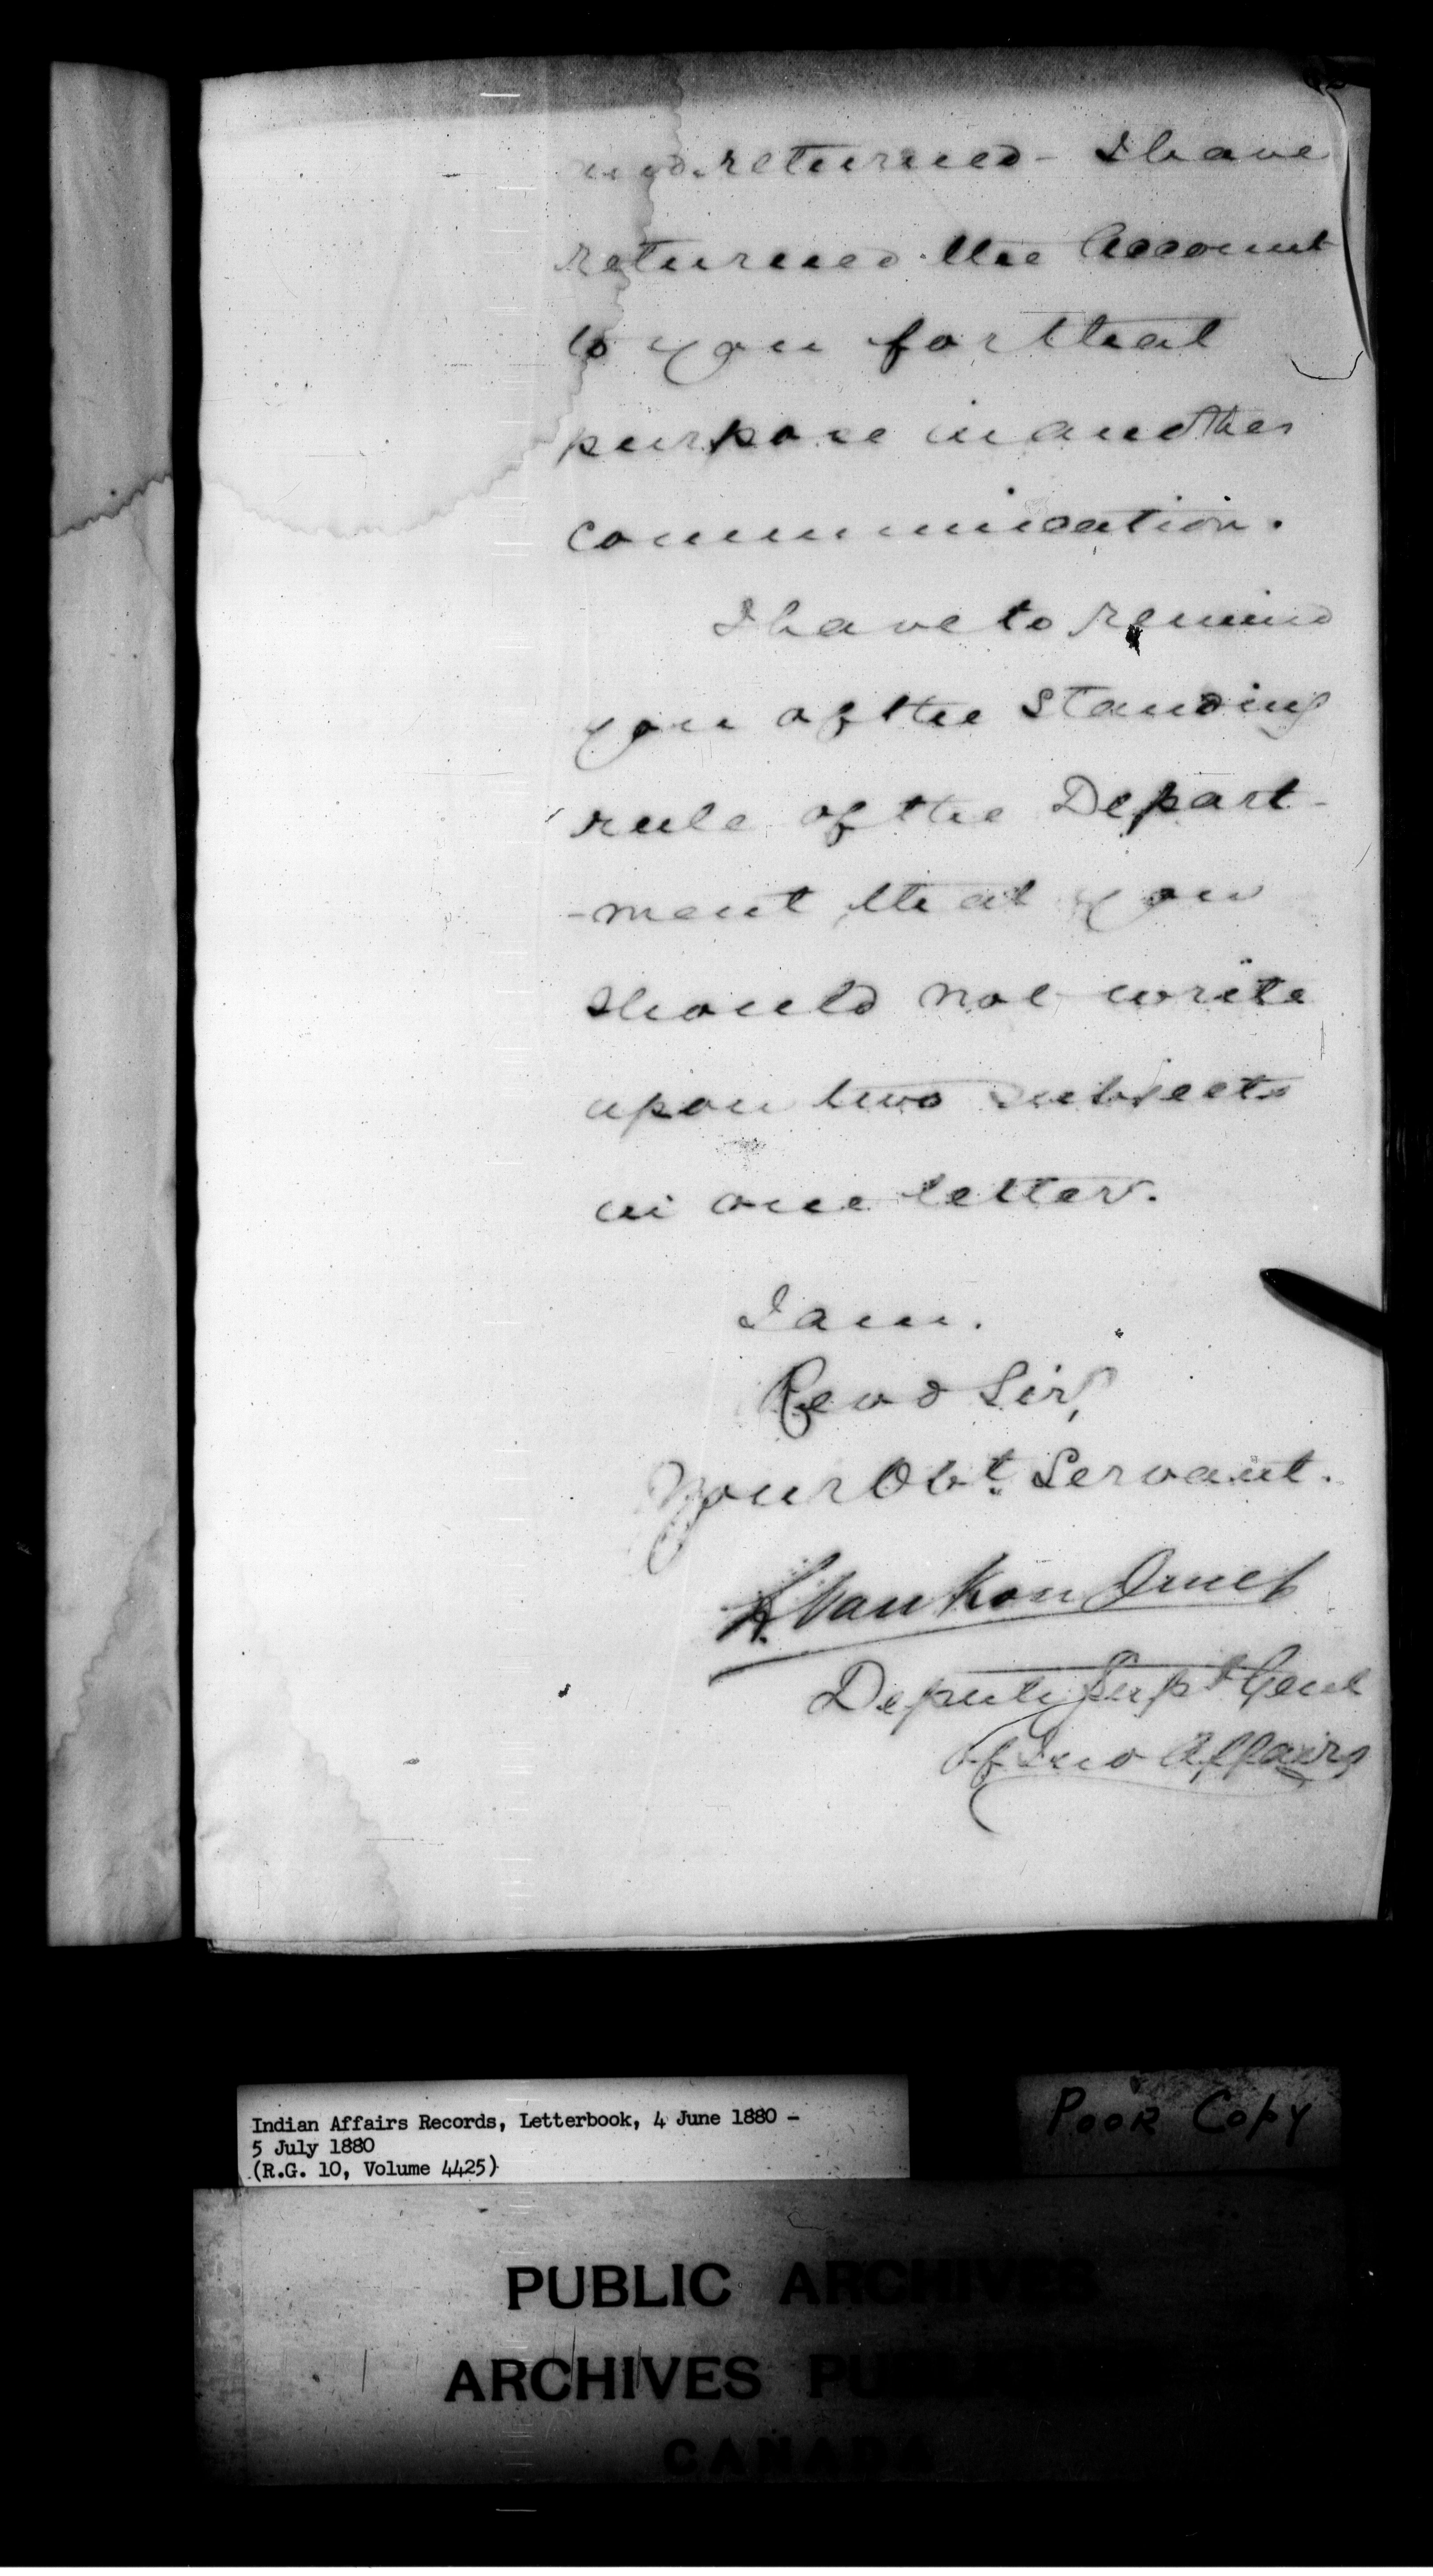 and returned - I have
returned the Account
to you for that
purpose in another
communication.
I have to remind
you of the Standing
rule of the Depart-
-ment that you
should not write
upon two subjects
in one letter.
I am.
Revd Sir,
Your Obt. Servant.
L. VanKoughnet
Deputy Supt Genl
of Ind Affairs
Indian Affairs Records, Letterbook, 4 June 1880 -
5 July 1880
(R.G. 10, Volume 4425)
POOR COPY
PUBLIC ARCHIVES
ARCHIVES PUBLIQUES
CANADA